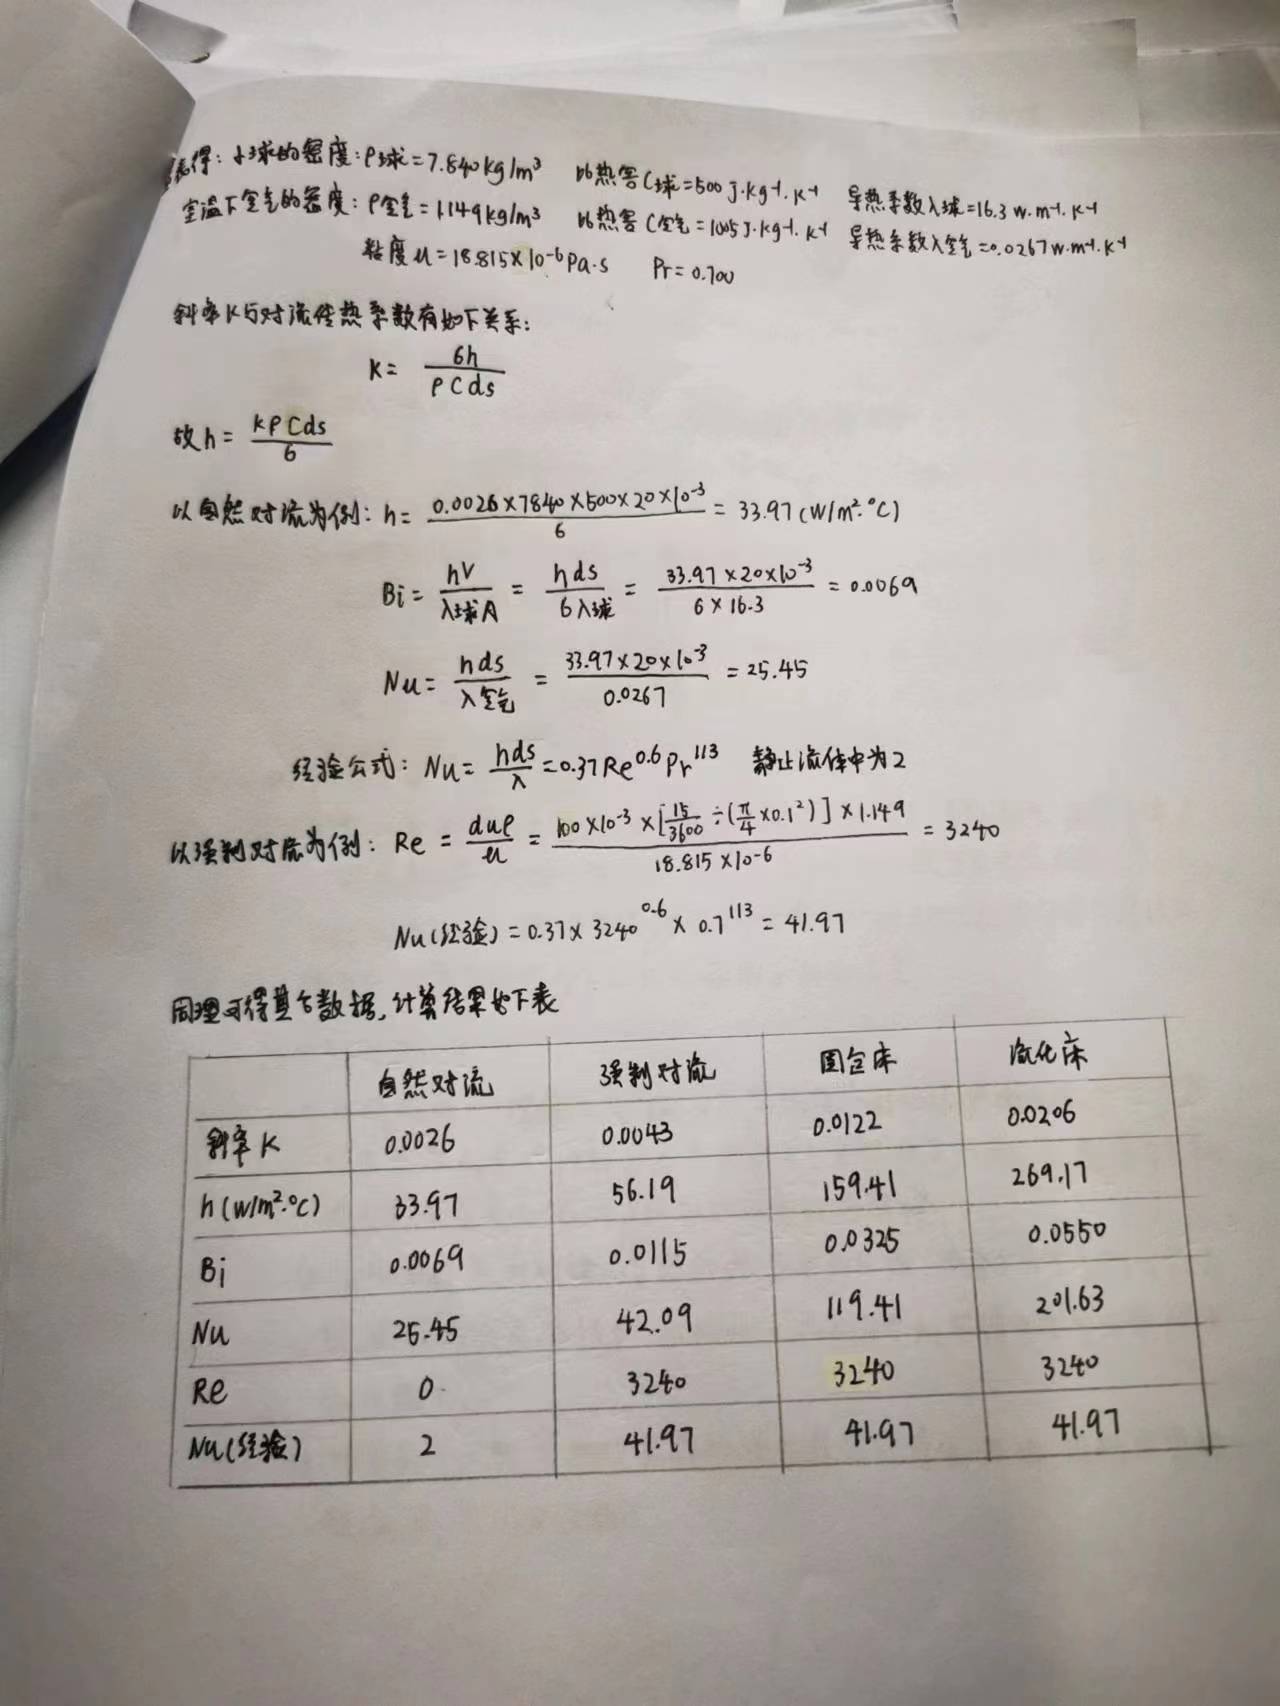 得: 小球的密度: ρ球=7.840kg/m³ 比热容C球=500J·kg⁻¹·K⁻¹ 导热系数λ球=16.3W·m⁻¹·K⁻¹
室温下空气的密度: ρ空气=1.149kg/m³ 比热容C空气=1005J·kg⁻¹·K⁻¹ 导热系数λ空气=0.0267W·m⁻¹·K⁻¹
粘度u=18.815×10⁻⁶Pa·s Pr=0.700
斜率K与对流传热系数有如下关系:
K= 6h/ρCds
故h= KρCds/6
以自然对流为例: h= 0.0026×7840×500×20×10⁻³/6 = 33.97(W/m²·℃)
Bi= hV/λ球A = hds/6λ球 = 33.97×20×10⁻³/6×16.3 = 0.0069
Nu= hds/λ空气 = 33.97×20×10⁻³/0.0267 = 25.45
经验公式: Nu= hds/λ =0.37Re^0.6Pr^1/3 静止流体中为2
以强制对流为例: Re = duρ/u = 100×10⁻³×[15/3600÷(π/4×0.1²)]×1.149/18.815×10⁻⁶ = 3240
Nu(经验)=0.37×3240^0.6×0.7^1/3=41.97
同理可得其余数据,计算结果如下表
自然对流 强制对流 固定床 流化床
斜率K 0.0026 0.0043 0.0122 0.0206
h(W/m²·℃) 33.97 56.19 159.41 269.17
Bi 0.0069 0.0115 0.0325 0.0550
Nu 25.45 42.09 119.41 201.63
Re 0 3240 3240 3240
Nu(经验) 2 41.97 41.97 41.97